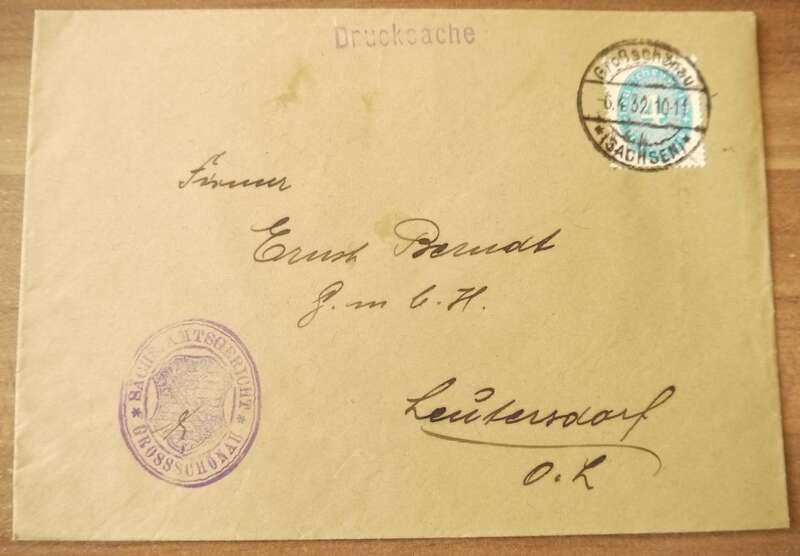 Drucksache
Großschönau
6.4.32.10-11
*(SACHSEN)*
4
Firma
Ernst Berndt
G.m b.H.
Leutersdorf
O.L
* SÄCHS. AMTSGERICHT *
GROSSSCHÖNAU